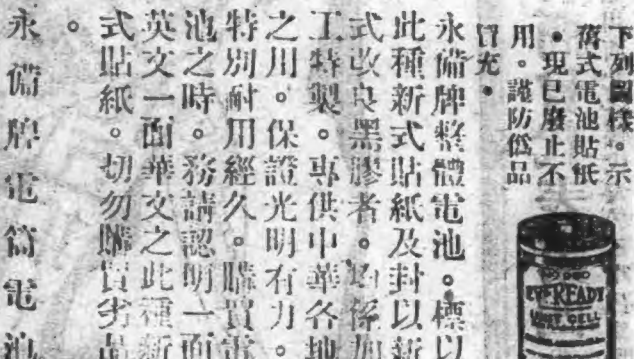 下列圖樣。示
舊式電池貼紙
。現已廢止不
用。謹防僞品
冒充。
永備牌整體電池。標以
此種新式貼紙及封以新
式改良黑膠者。均係加
工特製。專供中華各地
之用。保證光明有力。
特別耐用經久。購買電
池之時。務請認明一面
英文一面華文之此種新
式貼紙。切勿購買劣品
。
永備牌電筒電池
EVEREADY
UNIT CELL